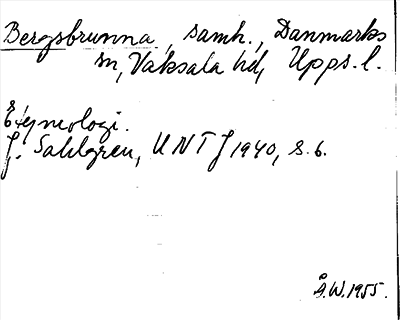 Bergsbrunna, samh., Danmarks
sn, Vaksala hd, Upps. l.
Etymologi.
J. Sahlgren, UNT J 1940, s. 6.
Å.W. 1955.